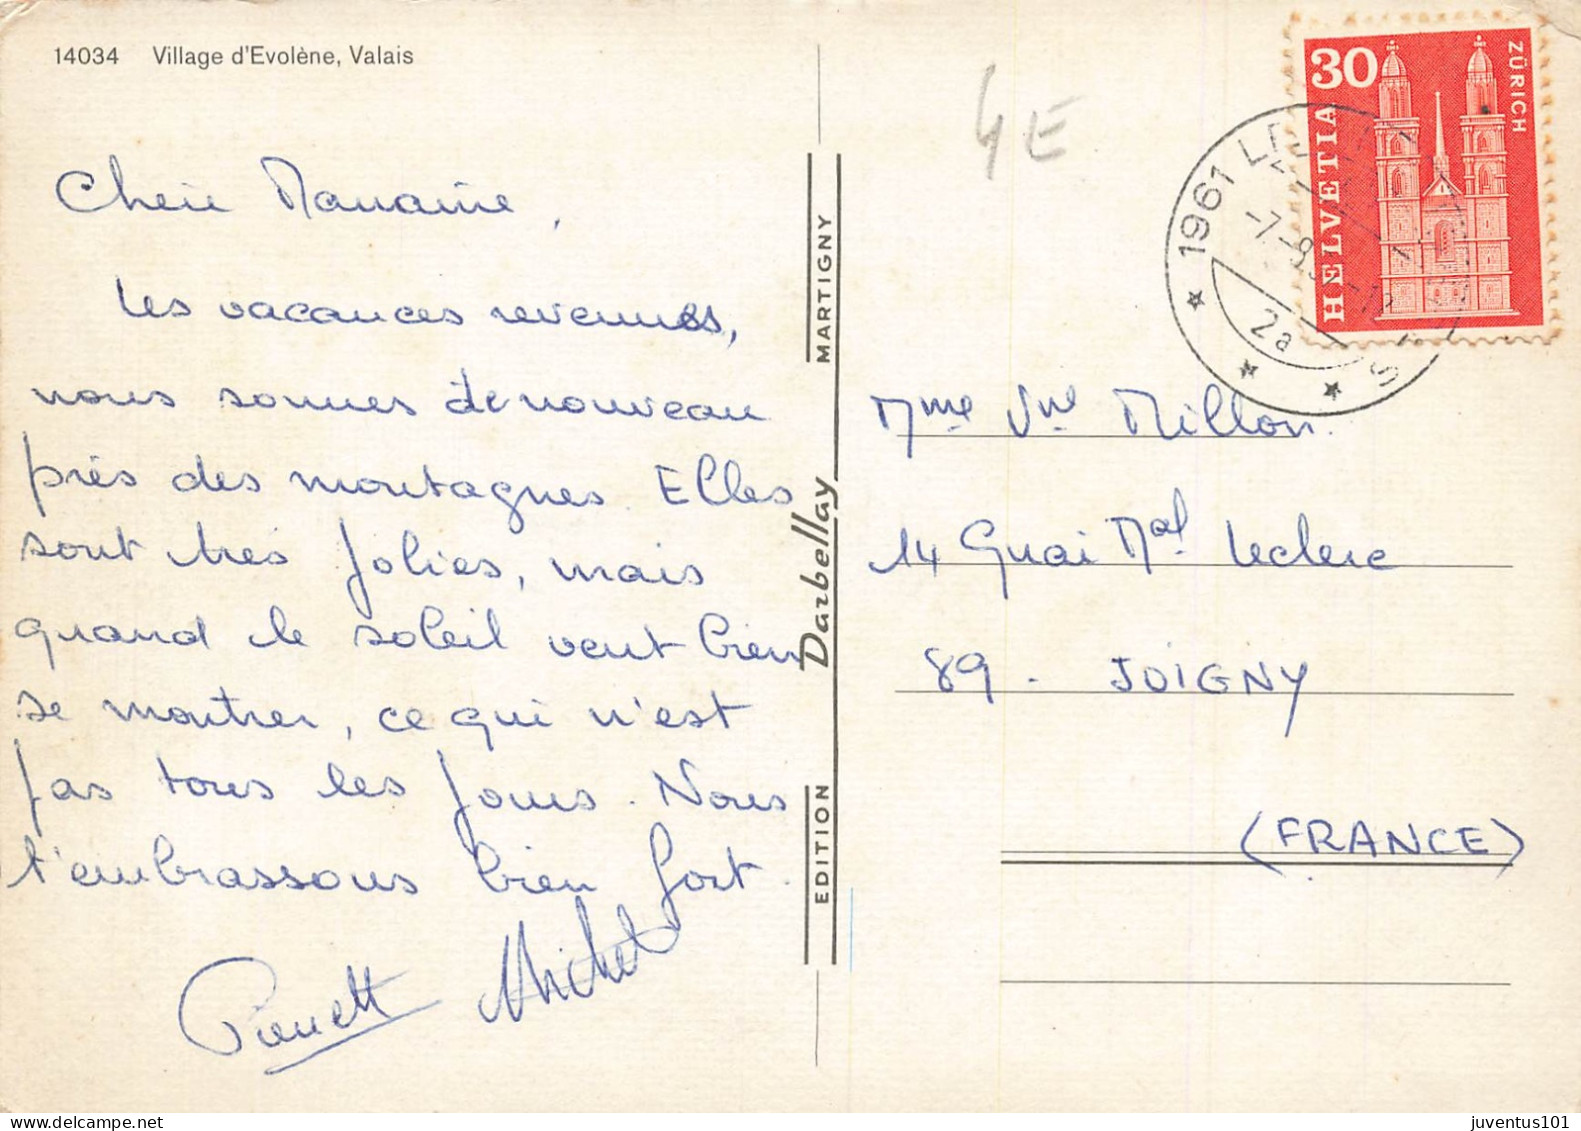 14034 Village d'Evolène, Valais
4E
30
ZÜRICH
HELVETIA
1961
-7.-8.
2a
Chérie Mamamie,
les vacances revenues,
nous sommes de nouveau
près des montagnes. Elles
sont très jolies, mais
quand le soleil veut bien
se montrer, ce qui n'est
pas tous les jours. Nous
t'embrassons bien fort.
Pierrette Michel
EDITION Darbellay MARTIGNY
Mme Vve Millon.
14 Quai Mal Leclerc
89 - JOIGNY
(FRANCE)
juventus101